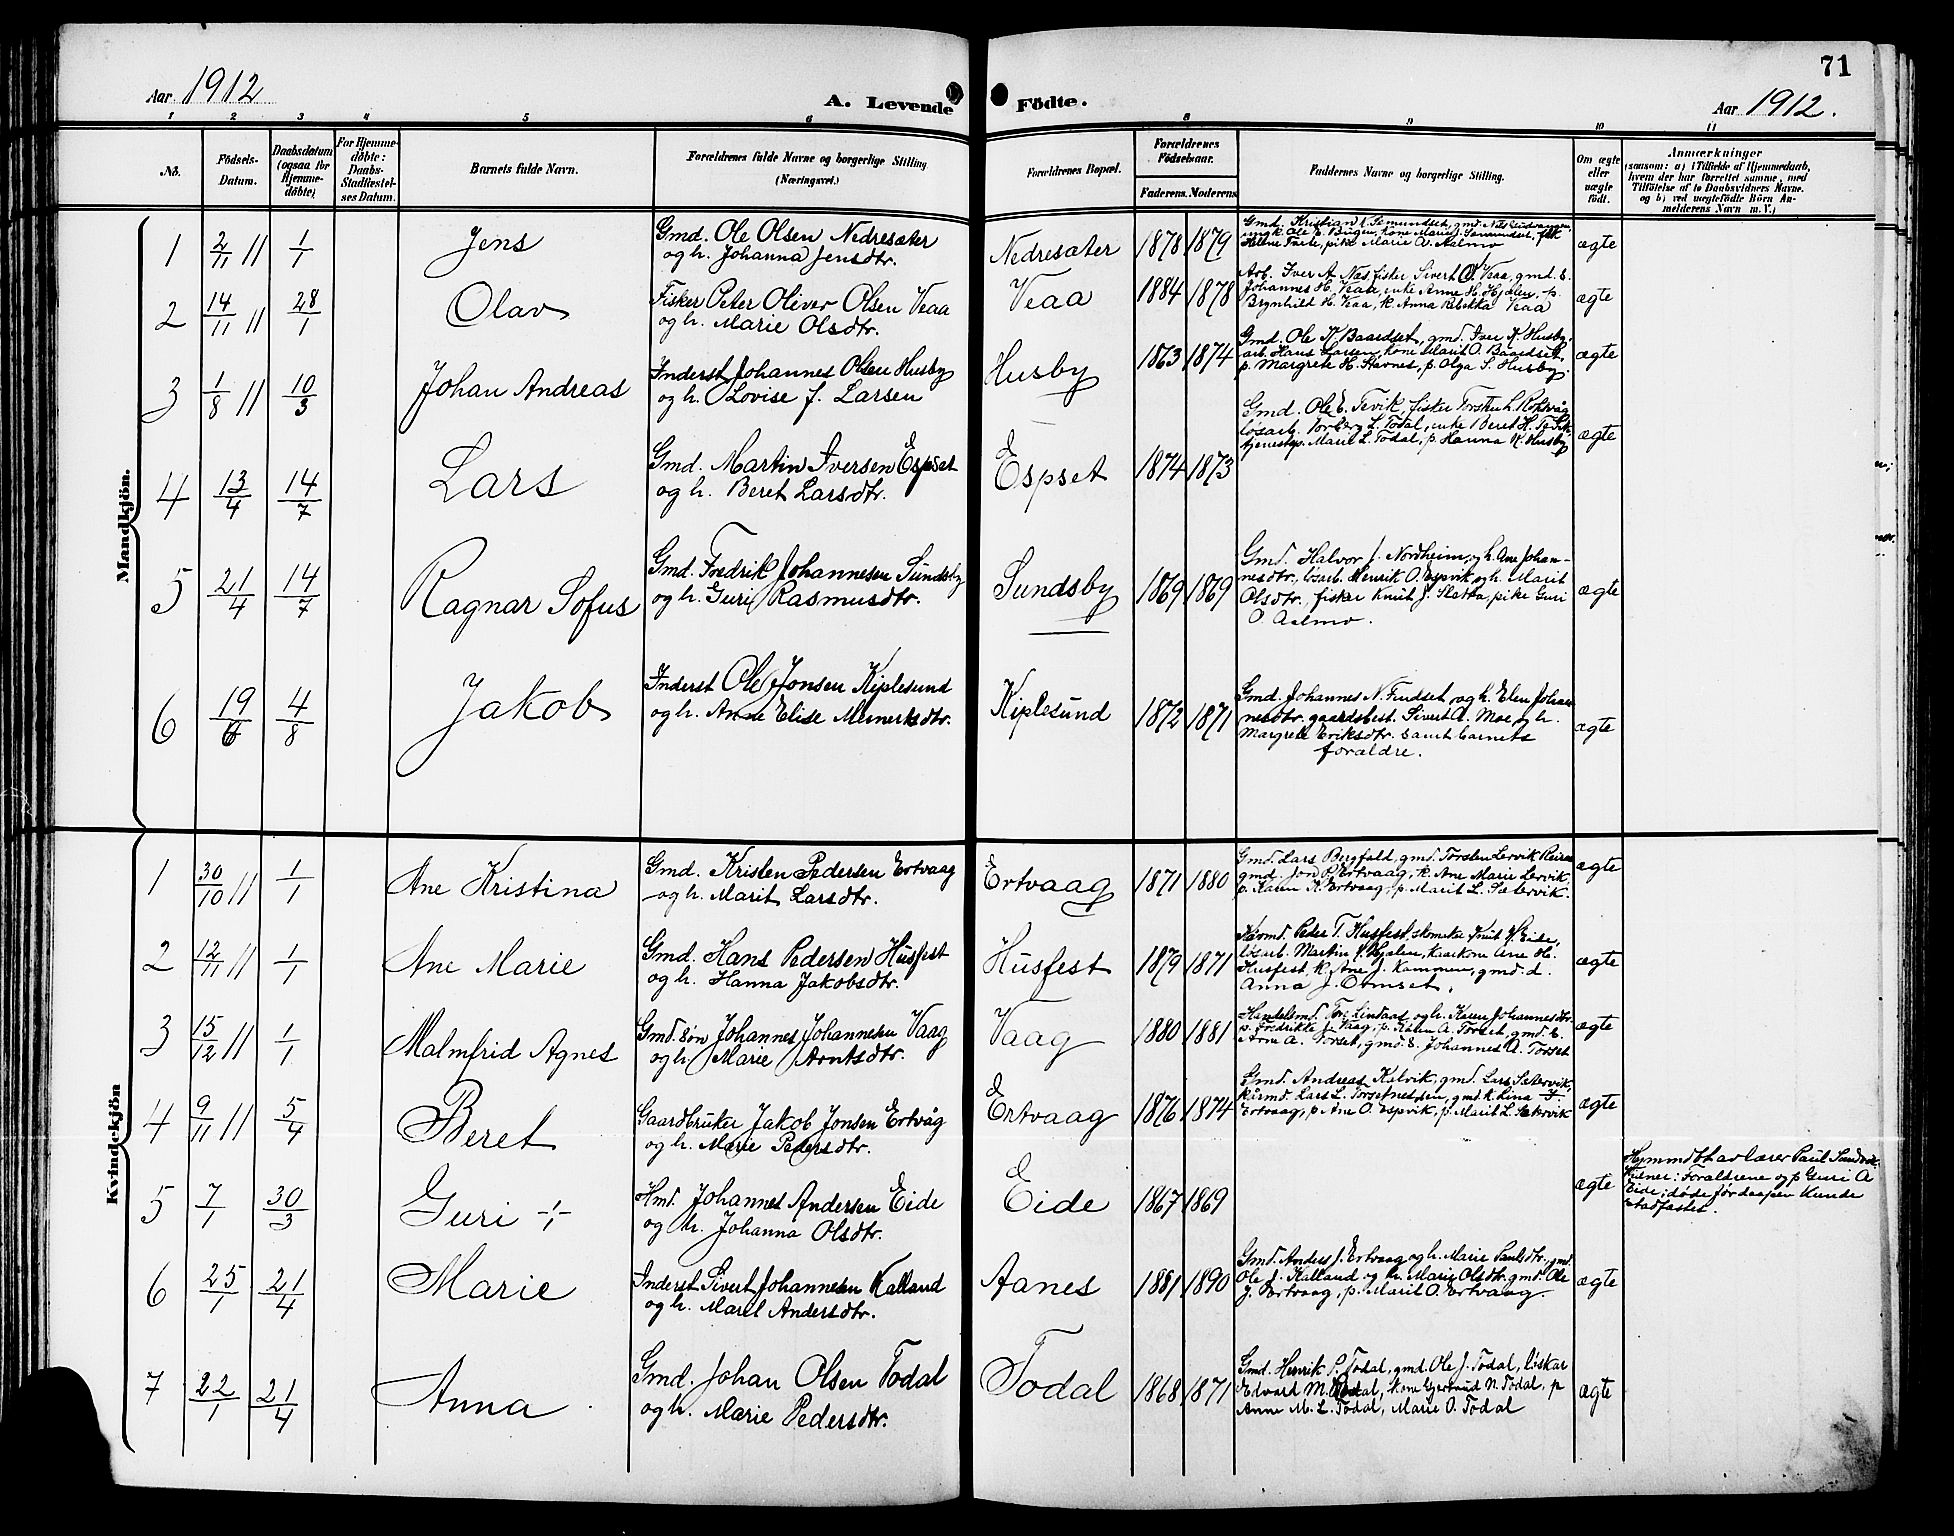 71
Aar 1912
A. Levende Födte.
Aar 1912.
1 2 3 4 5 6 8 9 10 11
No.
Födsels-Datum.
Daabsdatum (ogsaa for Hjemme-döbte).
For Hjemme-döbte: Daabs-Stadfæstel-ses Datum.
Barnets fulde Navn.
Forældrenes fulde Navne og borgerlige Stilling (Næringsvei.)
Forældrenes Bopæl.
Forældrenes Födselsaar.
Faderens. Moderens.
Faddernes Navne og borgerlige Stilling.
Om ægte eller uægte födt.
Anmærkninger
(saasom: a) i Tilfælde af Hjemmedaab,
hvem der har forrettet samme, med
Tilföielse af to Daabsvidners Navne,
og b) ved uægtefödte Börn An-
melderens Navn m. V.)
Mandkjön.
1 2/11 11 1/1 Jens
Gmd. Ole Olsen Nedresæter
og h. Johanna Jensdtr.
Nedresæter 1878 1879
Helene pike Marie O. Aalmo
ægte
2 14/11 11 28/1 Olav
Fisker Peter Oliver Olsen Veaa
og h. Marie Olsdtr.
Veaa 1884 1878
Arb. Iver A. Næs, fisker Sivert O. Veaa, gmd. s.
Johannes H. Veaa, enke Anne H. Hjelen, p.
Brynhild H. Veaa, k. Anna Rebekka Veaa
ægte
3 1/8 11 10/3 Johan Andreas
Inderst Johannes Olsen Husby
og h. Lovise J. Larsen
Husby 1863 1874
Gmd. Ole K. Baardset, gmd. Iver K. Husby,
arb. Hans Larsen, kone Marit O. Baardset,
p. Margrete H. Stavnes, p. Olga S. Husby.
ægte
4 13/4 14/7 Lars
Gmd. Martin Iversen Espset
og h. Beret Larsdtr.
Espset 1874 1873
Gmd. Ole E. Tevik, fisker Torsten L. Roksvåg
løsarb. Torberg L. Todal, enke Beret H.
tjenestp. Marie L. Todal, p. Hanna K. Husby
ægte
5 21/4 14/7 Ragnar Sofus
Gmd. Fredrik Johannesen Sundsby
og h. Guri Rasmusdtr.
Sundsby 1869 1869
Gmd. Halvor J. Nordheim og h. Ane Johan-
nesdtr., løsarb. Henrik O. Espvik og h. Marit
Olsdtr., fisker Knut J. Slatta, pike Guri
O. Aalmo.
ægte
6 19/6 4/8 Jakob
Inderst Ole Jonsen Kiplesund
og h. Anne Elise Meinerksdtr.
Kiplesund 1872 1871
Gmd. Johannes N. Findset og h. Elen Johan-
nesdtr. gaardsbest. Sivert A. Moe og h.
Margrete Eriksdtr. samt barnets
forældre.
ægte
Kvindekjön
1 30/10 11 1/1 Ane Kristina
Gmd. Kristen Pedersen Ertvaag
og h. Marit Larsdtr.
Ertvaag 1871 1880
Gmd. Lars Bergfald, gmd. Torsten Lervik
gmd. Jon P. Ertvaag, k. Ane Marie Lervik
p. Karen K. Ertvaag, p. Marit L. Sætervik.
ægte
2 12/11 11 1/1 Ane Marie
Gmd. Hans Pedersen Husfest
og h. Hanna Jakobsdtr.
Husfest 1879 1871
Peder T. Husfest, skomaker Knut J. Eide,
løsarb. Martin J. Hjelen, kaarkone Ane H.
Husfest, k. Ane J. Kammen, gmd. d.
Anna J. Omset.
ægte
3 15/12 11 1/1 Malmfrid Agnes
Gmd. søn Johannes Johannesen Vaag
og h. Marie Arntsdtr.
Vaag 1880 1881
Handelsmd. Tore Lindaas og h. Karen Johannesdtr.
p. Fredrikke J. Vaag, p. Karen A. Torset, gmd. s.
Arne A. Torset, gmd. s. Johannes A. Torset
ægte
4 9/11 11 5/4 Beret
Gaardbruker Jakob Jonsen Ertvåg
og h. Marie Pedersdtr.
Ertvaag 1876 1874
Gmd. Andreas Kalvik, gmd. Lars Sætervik,
kårmd. Lars L. Torsetnes, gmd. k. Lina J.
Ertvaag, p. Ane O. Espvik, p. Marit L. Sætervik
ægte
5 7/1 30/3 Guri -÷-
Hmd. Johannes Andersen Eide
og h. Johanna Olsdtr.
Eide 1867 1869
ægte
Hjemmedbt. av lærer Paul
Forældrene og p. Guri A.
Eide; døde før daapen kunde
stadfæstes.
6 25/1 21/4 Marie
Inderst Sivert Johannesen Kalland
og h. Marit Andersdtr.
Aanes 1881 1890
Gmd. Anders J. Ertvaag og h. Marie Paulsdtr. gmd.
Ole J. Kalland og h. Marie Olsdtr. gmd. Ole
J. Ertvaag, p. Marit O. Ertvaag.
ægte
7 22/1 21/4 Anna
Gmd. Johan Olsen Todal
og h. Marie Pedersdtr.
Todal 1868 1871
Gmd. Henrik P. Todal, gmd. Ole J. Todal, løskar
Edvard M. Todal, kone Gjertrud N. Todal, p
Anne M. L. Todal, Marie O. Todal
ægte